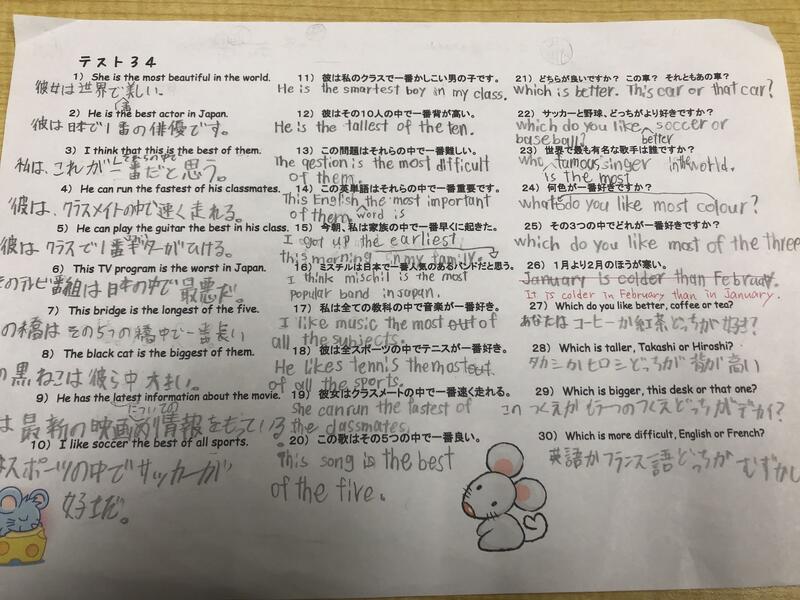 テスト34
1) She is the most beautiful in the world.
彼女は世界で美しい。
一番
2) He is the best actor in Japan.
彼は日本で1番の俳優です。
3) I think that this is the best of them.
私は、これが一番だと思う。
4) He can run the fastest of his classmates.
彼は、クラスメイトの中で速く走れる。
5) He can play the guitar the best in his class.
彼は クラスで1番ギターがひける。
6) This TV program is the worst in Japan.
のテレビ番組は日本の中で最悪だ。
7) This bridge is the longest of the five.
の橋は その5つの橋中で一番長い
8) The black cat is the biggest of them.
の黒ねこは彼ら中 大きい。
9) He has the latest information about the movie.
についての
は最新の映画 情報をもっている。
10) I like soccer the best of all sports.
はスポーツの中でサッカーが
好きだ。
11) 彼は私のクラスで一番かしこい男の子です。
He is the smartest boy in my class.
12) 彼はその10人の中で一番背が高い。
He is the tallest of the ten.
13) この問題はそれらの中で一番難しい。
The qestion is the most difficult
of them.
14) この英単語はそれらの中で一番重要です。
This English the most important
of them. word is
15) 今朝、私は家族の中で一番早くに起きた。
I got up the earliest
this morning in my family.
16) ミスチルは日本で一番人気のあるバンドだと思う。
I think mischil is the most
popular band in Japan.
17) 私は全ての教科の中で音楽が一番好き。
I like music the most out of
all the subjects.
18) 彼は全スポーツの中でテニスが一番好き。
He likes tennis the most out
of all the sports.
19) 彼女はクラスメートの中で一番速く走れる。
She can run the fastest of
the classmates.
20) この歌はその5つの中で一番良い。
This song is the best
of the five.
21) どちらが良いですか？ この車？ それともあの車？
Which is better. This car or that car?
22) サッカーと野球、どっちがより好きですか？
which do you like soccer or
baseball? better
23) 世界で最も有名な歌手は誰ですか？
who famous singer in the world.
is the most
24) 何色が一番好きですか？
what do you like most colour?
25) その3つの中でどれが一番好きですか？
which do you like most of the three
26) 1月より2月のほうが寒い。
January is colder than February.
It is colder in February than in January.
27) Which do you like better, coffee or tea?
あなたは コーヒーか紅茶どっちが好き？
28) Which is taller, Takashi or Hiroshi?
タカシかヒロシどっちが背が高い
29) Which is bigger, this desk or that one?
この つくえかもう1つのつくえどっちがデカイ？
30) Which is more difficult, English or French?
英語かフランス語どっちが むずかし